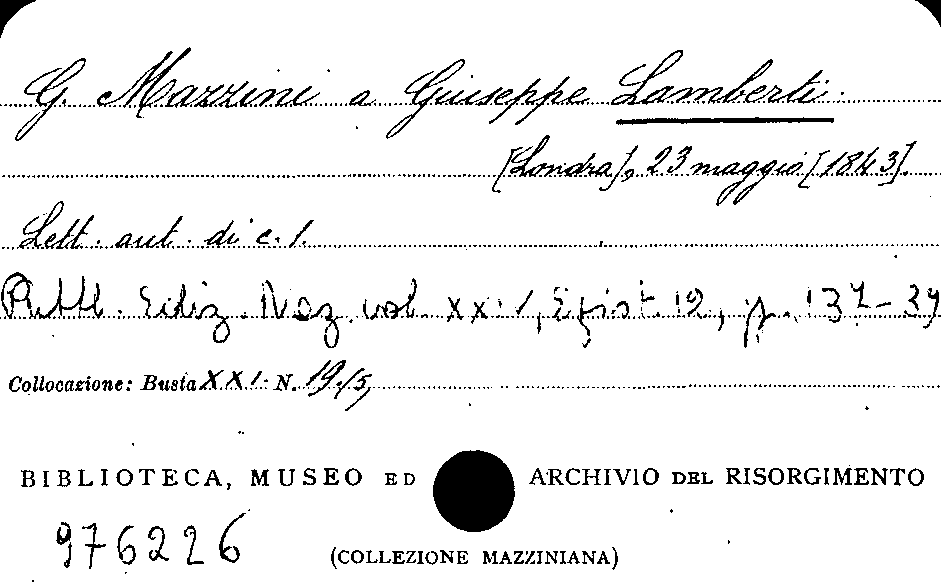 G. Mazzini a Giuseppe Lamberti.
[Londra], 23 maggio [1843].
Lett. aut. di c. 1.
Pubbl. Ediz. Naz. vol. XXIV, Epist. 12, p. 137-39
Collocazione: Busta XXI. N. 19/5,
BIBLIOTECA, MUSEO ED ARCHIVIO DEL RISORGIMENTO
976226
(COLLEZIONE MAZZINIANA)